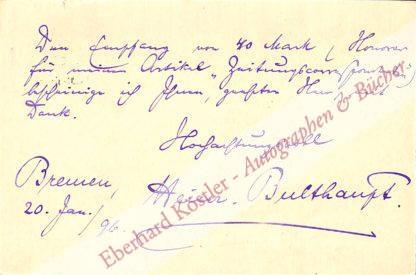 Den Empfang von 40 Mark (Honorar
für meinen Artikel „Zeitungscorrespondenz
bescheinige ich Ihnen, geehrter Herr, mit
Dank.
Hochachtungsvoll
Bremen,
Heinr. Bulthaupt.
20. Jan. 96.
Eberhard Köstler - Autographen & Bücher